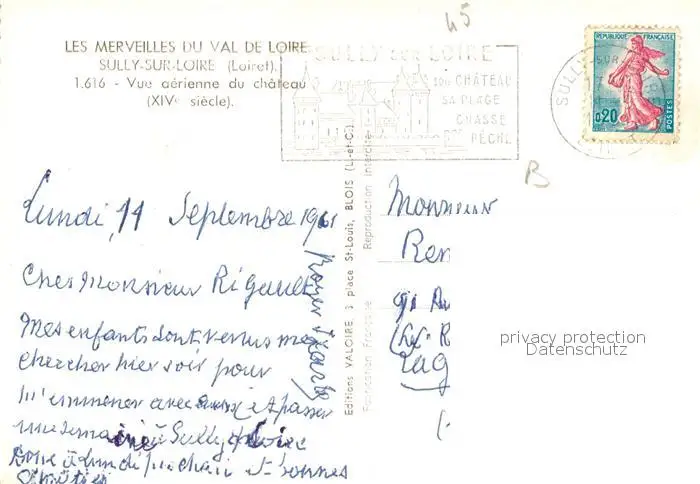 LES MERVEILLES DU VAL DE LOIRE
SULLY-SUR-LOIRE (Loiret).
1.616 - Vue aérienne du château
(XIVe siècle).
SULLY SUR LOIRE
SON CHÂTEAU
SA PLAGE
CHASSE
PÊCHE
45
REPUBLIQUE FRANÇAISE
0,20
POSTES
SULLY SUR
B
Lundi, 11 Septembre 1961
Cher Monsieur Rigault
Mes enfants sont venus me
chercher hier soir pour
m'emmener avec eux et passer
une semaine à Sully s/ Loire
Donc à Lundi prochain et bonnes
Roger
Editions VALOIRE, 3 place St-Louis, BLOIS (L.-et-C.)
Fabrication Française Reproduction interdite
Monsieur
Ren
privacy protection
Datenschutz